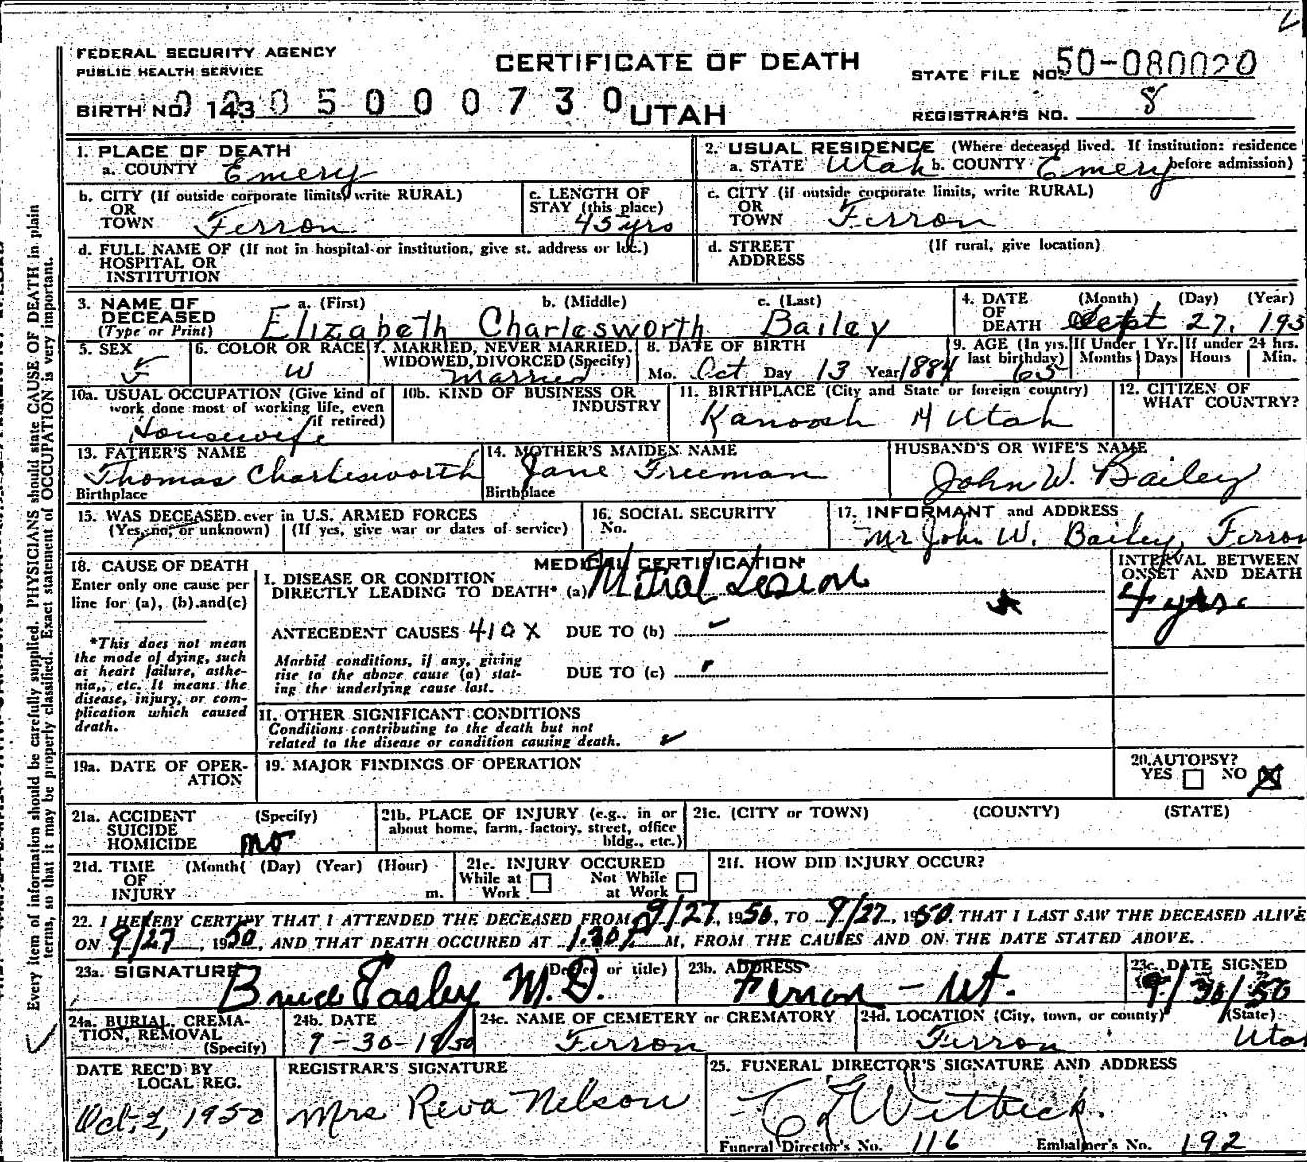 FEDERAL SECURITY AGENCY
PUBLIC HEALTH SERVICE
CERTIFICATE OF DEATH
STATE FILE NO. 50-080020
BIRTH NO. 143 0005000730
UTAH
REGISTRAR'S NO. 8
Every item of information should be carefully supplied. PHYSICIANS should state CAUSE OF DEATH in plain
terms, so that it may be properly classified. Exact statement of OCCUPATION is very important.
1. PLACE OF DEATH
a. COUNTY Emery
2. USUAL RESIDENCE (Where deceased lived. If institution: residence before admission)
a. STATE Utah b. COUNTY Emery
b. CITY (If outside corporate limits, write RURAL) OR TOWN Ferron
c. LENGTH OF STAY (this place) 45 yrs
c. CITY (If outside corporate limits, write RURAL) OR TOWN Ferron
d. FULL NAME OF (If not in hospital or institution, give st. address or loc.) HOSPITAL OR INSTITUTION
d. STREET ADDRESS (If rural, give location)
3. NAME OF DECEASED (Type or Print) a. (First) b. (Middle) c. (Last)
Elizabeth Charlesworth Bailey
4. DATE OF DEATH (Month) (Day) (Year)
Sept 27, 195
5. SEX F
6. COLOR OR RACE W
7. MARRIED, NEVER MARRIED, WIDOWED, DIVORCED (Specify) Married
8. DATE OF BIRTH
Mo. Oct Day 13 Year 1884
9. AGE (In yrs. last birthday) 65
If Under 1 Yr. Months Days
If under 24 hrs. Hours Min.
10a. USUAL OCCUPATION (Give kind of work done most of working life, even if retired)
Housewife
10b. KIND OF BUSINESS OR INDUSTRY
11. BIRTHPLACE (City and State or foreign country)
Kanosh Utah
12. CITIZEN OF WHAT COUNTRY?
13. FATHER'S NAME
Thomas Charlesworth
Birthplace
14. MOTHER'S MAIDEN NAME
Jane Freeman
Birthplace
HUSBAND'S OR WIFE'S NAME
John W. Bailey
15. WAS DECEASED ever in U.S. ARMED FORCES
(Yes, no, or unknown) (If yes, give war or dates of service)
16. SOCIAL SECURITY No.
17. INFORMANT and ADDRESS
Mr John W. Bailey, Ferron
18. CAUSE OF DEATH
Enter only one cause per line for (a), (b) and (c)
*This does not mean the mode of dying, such as heart failure, asthenia, etc. It means the disease, injury, or complication which caused death.
MEDICAL CERTIFICATION
I. DISEASE OR CONDITION DIRECTLY LEADING TO DEATH* (a) Mitral Lesion
INTERVAL BETWEEN ONSET AND DEATH
4 yrs.
ANTECEDENT CAUSES 410X DUE TO (b)
Morbid conditions, if any, giving rise to the above cause (a) stating the underlying cause last.
DUE TO (c)
II. OTHER SIGNIFICANT CONDITIONS
Conditions contributing to the death but not related to the disease or condition causing death.
19a. DATE OF OPERATION
19. MAJOR FINDINGS OF OPERATION
20. AUTOPSY?
YES NO X
21a. ACCIDENT SUICIDE HOMICIDE (Specify) no
21b. PLACE OF INJURY (e.g., in or about home, farm, factory, street, office bldg., etc.)
21c. (CITY or TOWN) (COUNTY) (STATE)
21d. TIME OF INJURY (Month) (Day) (Year) (Hour) m.
21e. INJURY OCCURED
While at Work Not While at Work
21f. HOW DID INJURY OCCUR?
22. I HEREBY CERTIFY THAT I ATTENDED THE DECEASED FROM 9/27, 1950, TO 9/27, 1950 THAT I LAST SAW THE DECEASED ALIVE
ON 9/27, 1950, AND THAT DEATH OCCURED AT 1:30 P M, FROM THE CAUSES AND ON THE DATE STATED ABOVE.
23a. SIGNATURE (Degree or title)
Bruce Easley M.D.
23b. ADDRESS
Ferron - Ut.
23c. DATE SIGNED
9/30/50
24a. BURIAL, CREMATION, REMOVAL (Specify)
24b. DATE
9-30-1950
24c. NAME OF CEMETERY or CREMATORY
Ferron
24d. LOCATION (City, town, or county) (State)
Ferron Utah
DATE REC'D BY LOCAL REG.
Oct. 2, 1950
REGISTRAR'S SIGNATURE
Mrs Reva Nelson
25. FUNERAL DIRECTOR'S SIGNATURE AND ADDRESS
Witbeck.
Funeral Director's No. 116 Embalmer's No. 192